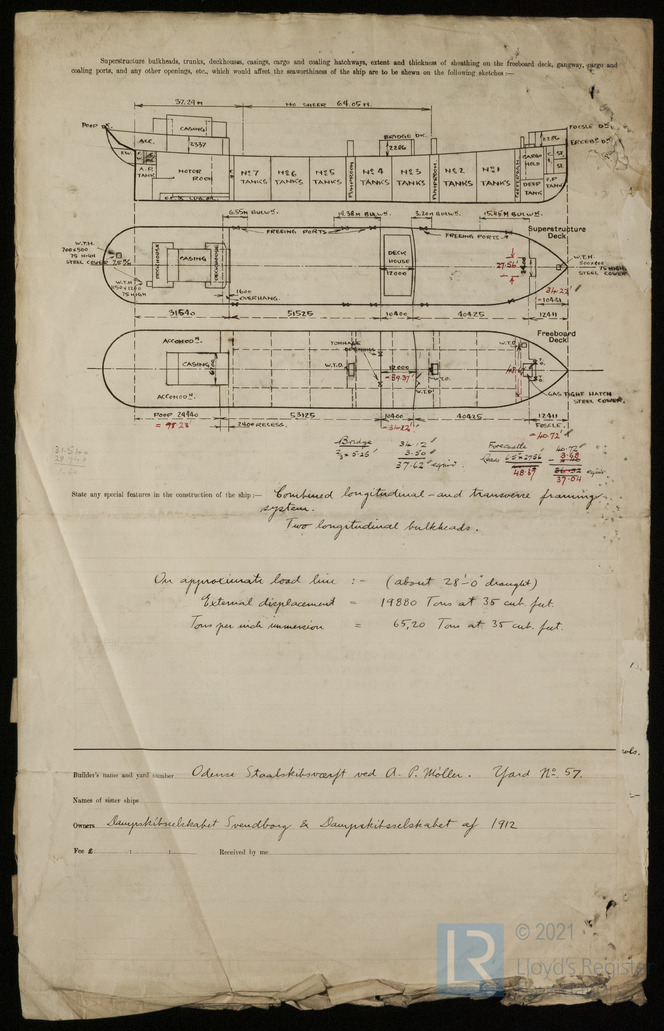 Superstructure bulkheads, trunks, deckhouses, casings, cargo and coaling hatchways, extent and thickness of sheathing on the freeboard deck, gangway, cargo and
coaling ports, and any other openings, etc., which would affect the seaworthiness of the ship are to be shewn on the following sketches :—
37.29 M NO SHEER 64.05 M.
POOP DK CASING BRIDGE DK. 2286 FOCSLE DK.
ACC. 2337 2286
A.P. TANK MOTOR ROOM No 7 TANKS No 6 TANKS No 5 TANKS PUMPROOM No 4 TANKS No 3 TANKS PUMPROOM No 2 TANKS No 1 TANKS CARGO HOLD DEEP TANK F.P. TANK
6.55M BULWK. 19.38M BULWK. 3.20M BULWK. 15.85M BULWK.
FREEING PORTS FREEING PORTS Superstructure Deck
W.T.H. 700x500 75 HIGH STEEL COVER
DECKHOUSE CASING DECKHOUSE DECK HOUSE 12000 27.56' W.T.H. 500x600 75 HIGH STEEL COVER
W.T.H. 75 HIGH
1600 OVERHANG. 34.22' 10431
31540 51525 10400 40425 12411
ACCOMODN. TONNAGE OPENINGS W.T.D. Freeboard Deck
CASING W.T.D. 12000 = 39.37' W.T.D.
ACCOMODN. W.T.D. GAS TIGHT HATCH STEEL COVER.
POOP 29940 53125 10400 40425 12411
= 98.23' 2400 RECESS. = 34.12' FOCSLE. = 40.72'
Bridge 34.12' Forecastle 40.72'
3.50' 3.68
37.62' equiv. 48.67 37.04 equiv
State any special features in the construction of the ship :— Combined longitudinal - and transverse framing
system.
Two longitudinal bulkheads.
On approximate load line :- (about 28'-0" draught)
External displacement = 19880 Tons at 35 cub. feet.
Tons per inch immersion = 65,20 Tons at 35 cub. feet.
Builder's name and yard number Odense Staalskibsværft ved A. P. Möller. Yard No. 57.
Names of sister ships
Owners Dampskibsselskabet Svendborg & Dampskibsselskabet af 1912
Fee £ : : Received by me
LR © 2021
Lloyd's Register